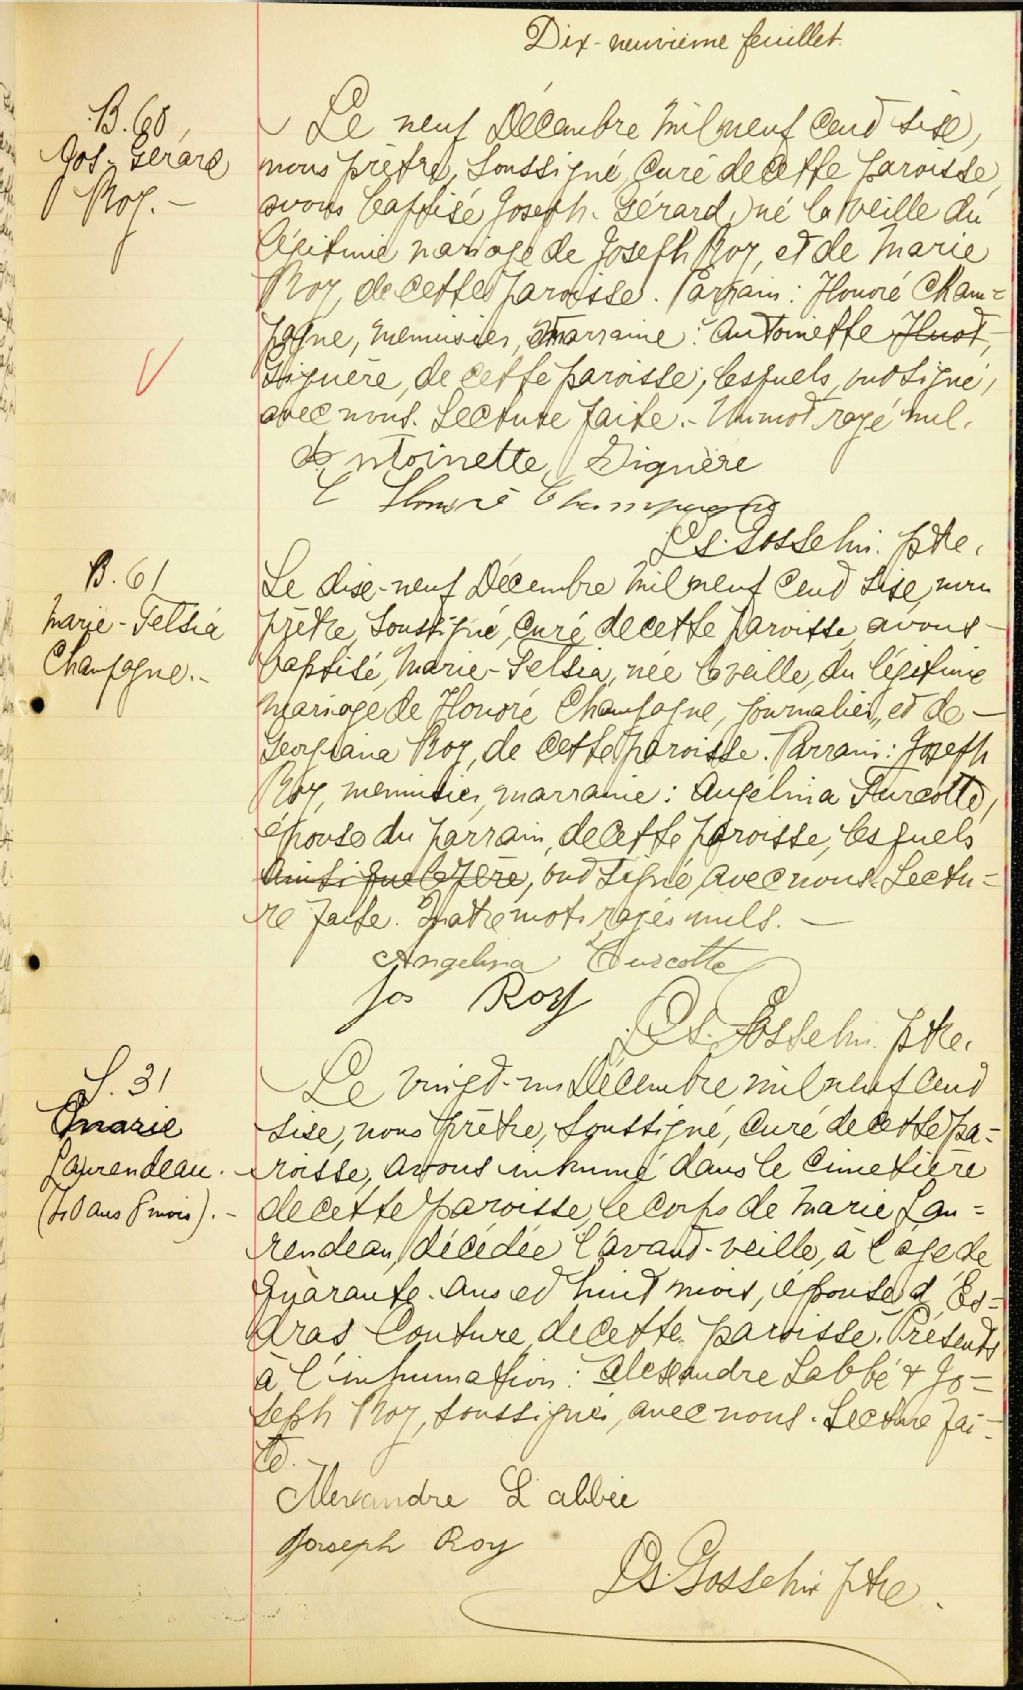 Dix-neuvième feuillet.
B. 60
Jos. Gérard
Roy. -
Le neuf Décembre mil neuf cent sise,
nous prêtre, soussigné, curé de cette paroisse,
avons baptisé Joseph-Gérard, né la veille du
légitime mariage de Joseph Roy, et de Marie
Roy, de cette paroisse. Parrain: Honoré Cham=
pagne, menuisier, marraine: Antoinette Huot,
Giguère, de cette paroisse, lesquels, ont signé,
avec nous. Lecture faite. - Un mot rayé nul.
Antoinette Giguère
Honoré Champagne
Ls. Gosselin. ptre.
B. 61
Marie-Telsia
Champagne. -
Le dise-neuf Décembre mil neuf cent sise, nous
prêtre, soussigné, curé de cette paroisse, avons -
baptisé, Marie-Telsia, née la veille, du légitime
mariage de Honoré Champagne, journalier, et de -
Georgiana Roy, de cette paroisse. Parrain: Joseph
Roy, menuisier, marraine: Angélina Turcotte,
épouse du parrain, de cette paroisse, lesquels
ainsi que le père, ont signé, avec nous. Lectu=
re faite. Quatre mots rayés nuls. -
Angelina Turcotte
Jos Roy
Ls. Gosselin. ptre.
S. 31
Marie
Laurendeau. -
(40 ans 8 mois). -
Le vingt-un Décembre mil neuf cent
sise, nous prêtre, soussigné, curé de cette pa=
roisse, avons inhumé dans le cimetière
de cette paroisse, le corps de Marie Lau=
rendeau, décédée l'avant-veille, à l'âge de
quarante-ans et huit mois, épouse d'Es=
dras Couture, de cette paroisse. Présents
à l'inhumation: Alexandre Labbé & Jo=
seph Roy, soussignés, avec nous. Lecture fai=
te.
Alexandre Labbée
Joseph Roy
Ls. Gosselin ptre.